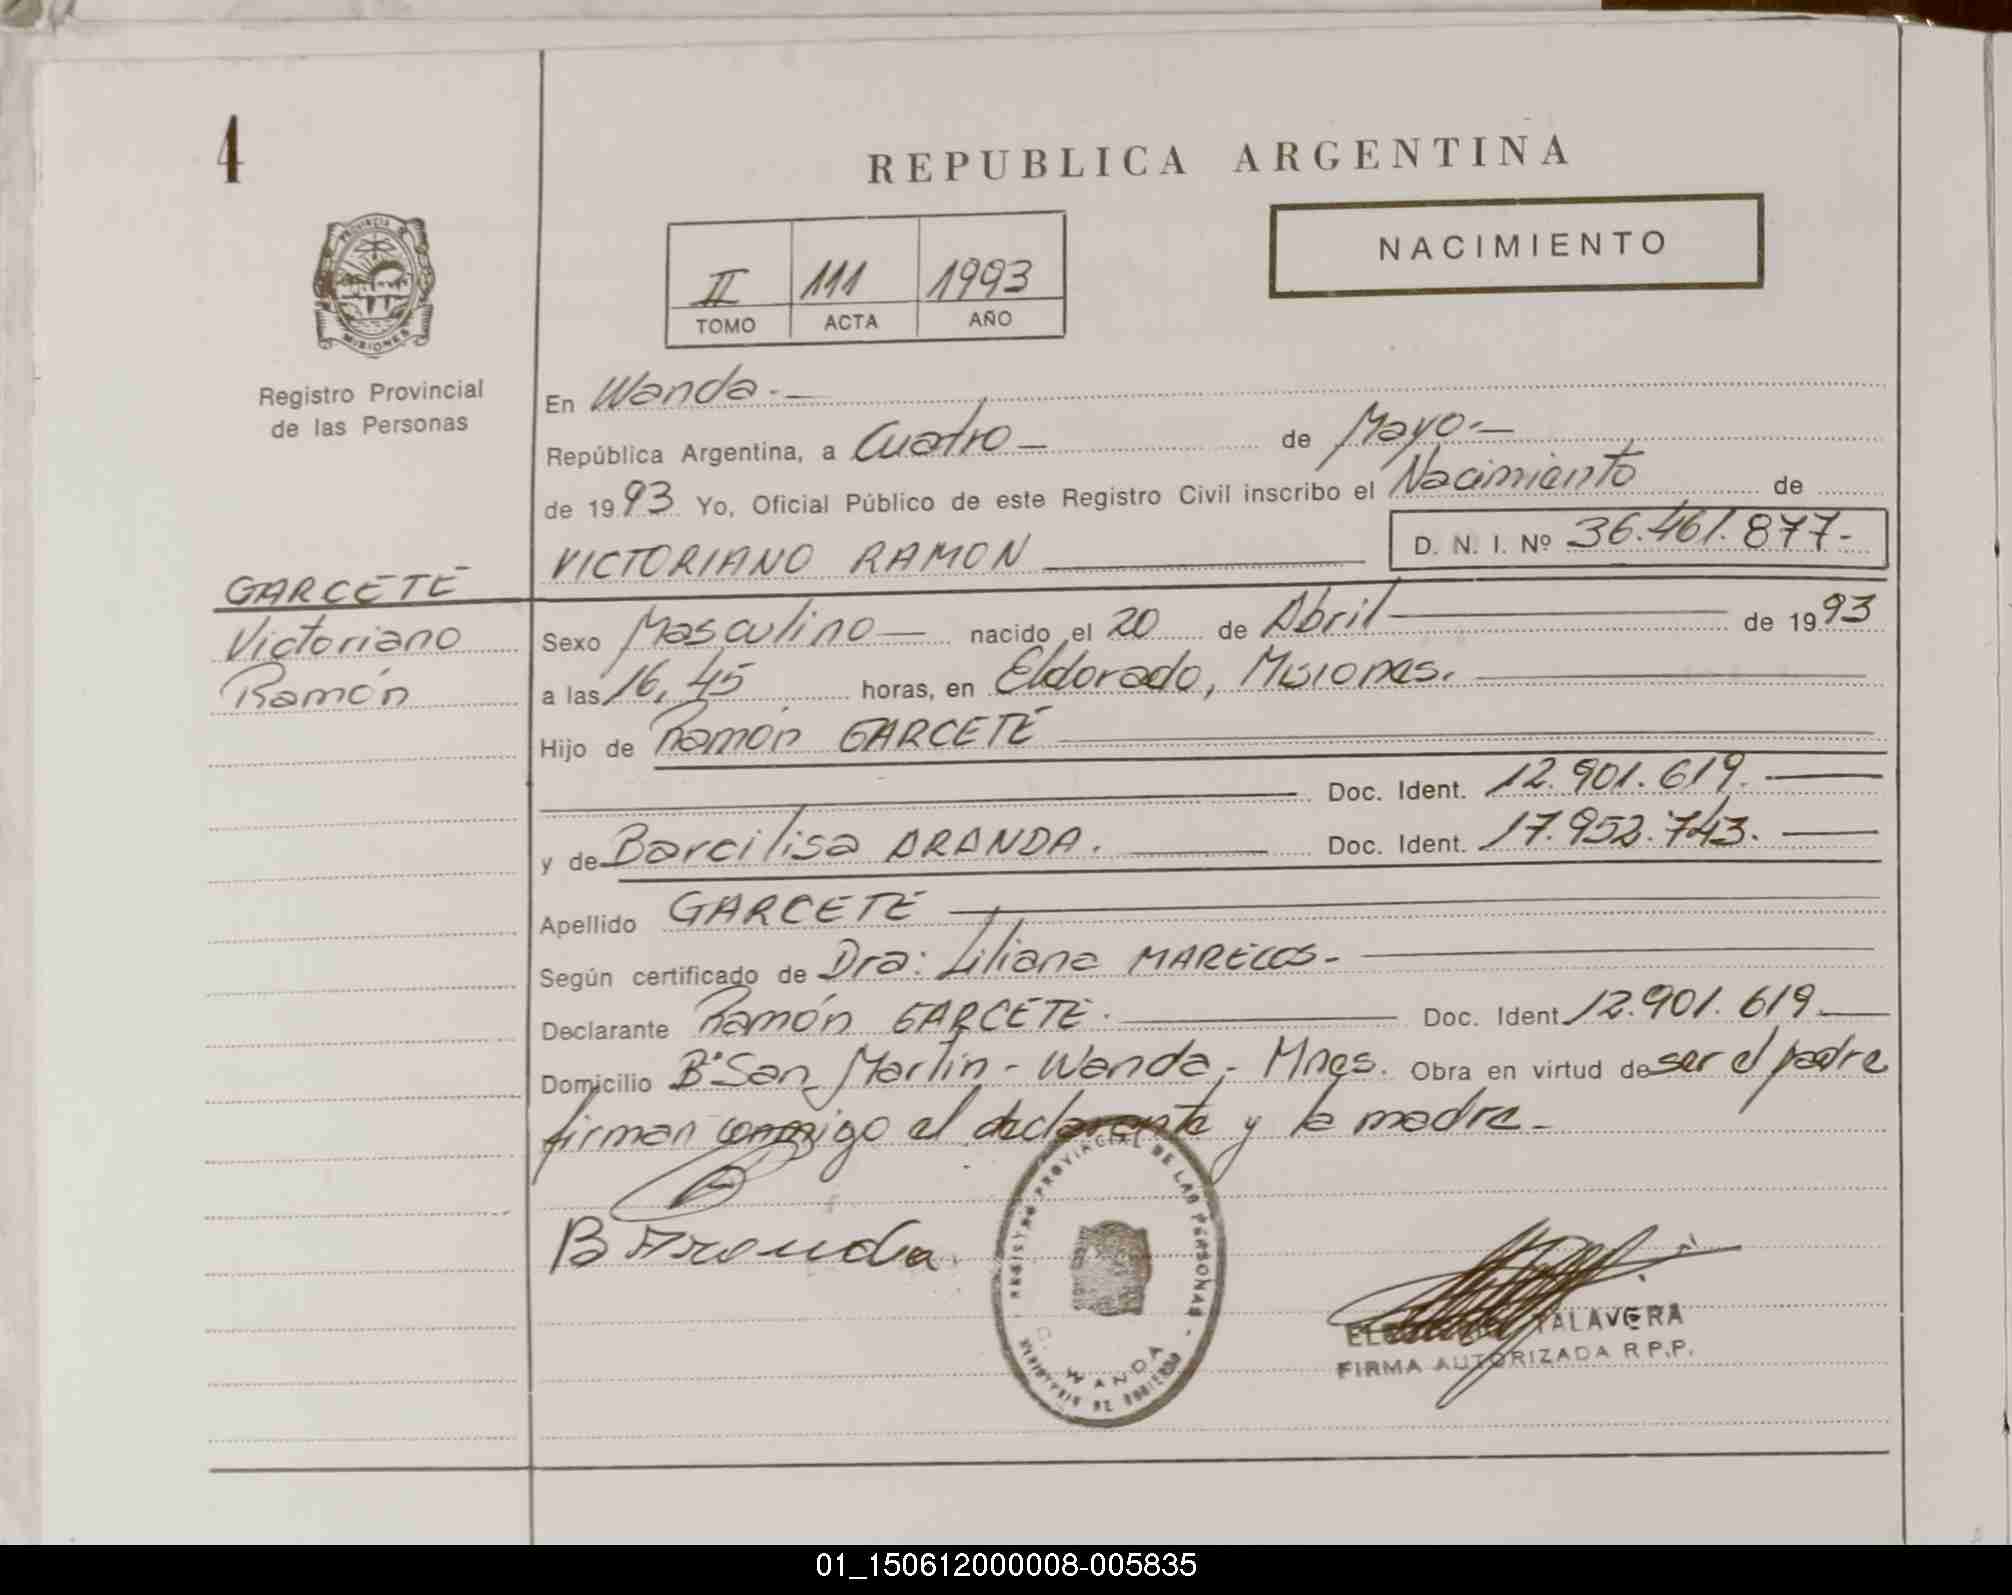 4
REPUBLICA ARGENTINA
NACIMIENTO
II 111 1993
TOMO ACTA AÑO
PROVINCIA DE
MISIONES
Registro Provincial
de las Personas
En Wanda.-
República Argentina, a Cuatro de Mayo.-
de 1993 Yo, Oficial Público de este Registro Civil inscribo el Nacimiento de
VICTORIANO RAMON D. N. I. Nº 36.461.877-
GARCETE
Victoriano
Ramón
Sexo Masculino nacido el 20 de Abril de 1993
a las 16,45 horas, en Eldorado, Misiones.
Hijo de Ramón GARCETE
Doc. Ident. 12.901.619.
y de Barcilisa ARANDA. Doc. Ident. 17.952.743.
Apellido GARCETE
Según certificado de Dra: Liliana MARECOS-
Declarante Ramón GARCETE. Doc. Ident 12.901.619
Domicilio Bº San Martín - Wanda - Mnes. Obra en virtud de ser el padre
firman conmigo el declarante y la madre-
B Aranda
REGISTRO PROVINCIAL DE LAS PERSONAS -
WANDA
MINISTERIO DE GOBIERNO
TALAVERA
FIRMA AUTORIZADA R.P.P.
01_150612000008-005835